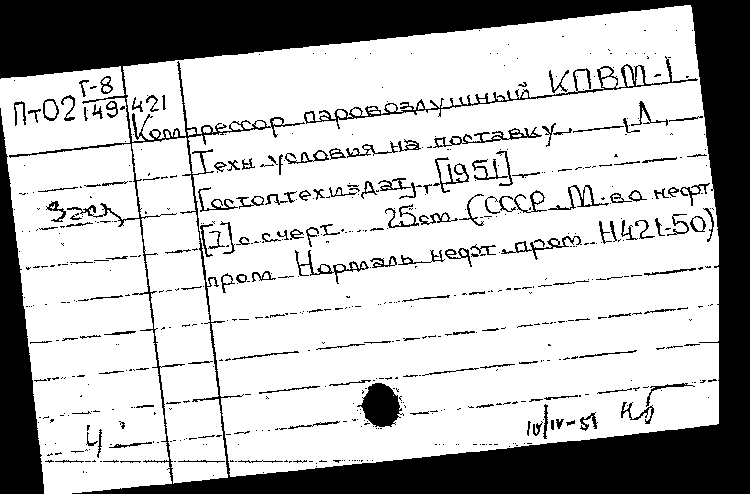 ПтО2 Г-8
149-421
Компрессор паровоздушный КПВМ-1.
Техн. условия на поставку. Л,
Гостоптехиздат, [1951]
[7] с. с черт. 25 см. (СССР. М-во нефт.
пром. Нормаль нефт. пром. Н421-50)
4
10/IV-51